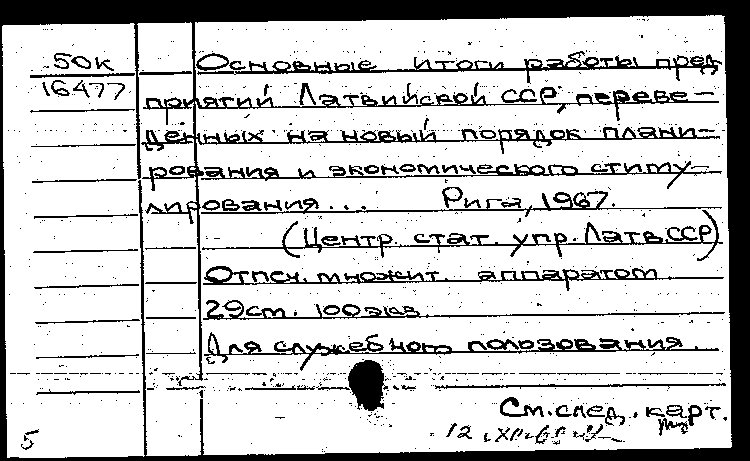 50к
16477
Основные итоги работы пред
приятий Латвийской ССР, переве-
денных на новый порядок плани-
рования и экономического стиму-
лирования... Рига, 1967.
(Центр. стат. упр. Латв.ССР)
Отпеч. множит. аппаратом
29ст. 100экз.
Для служебного ползования.
См. след. карт.
12.XII.68
5